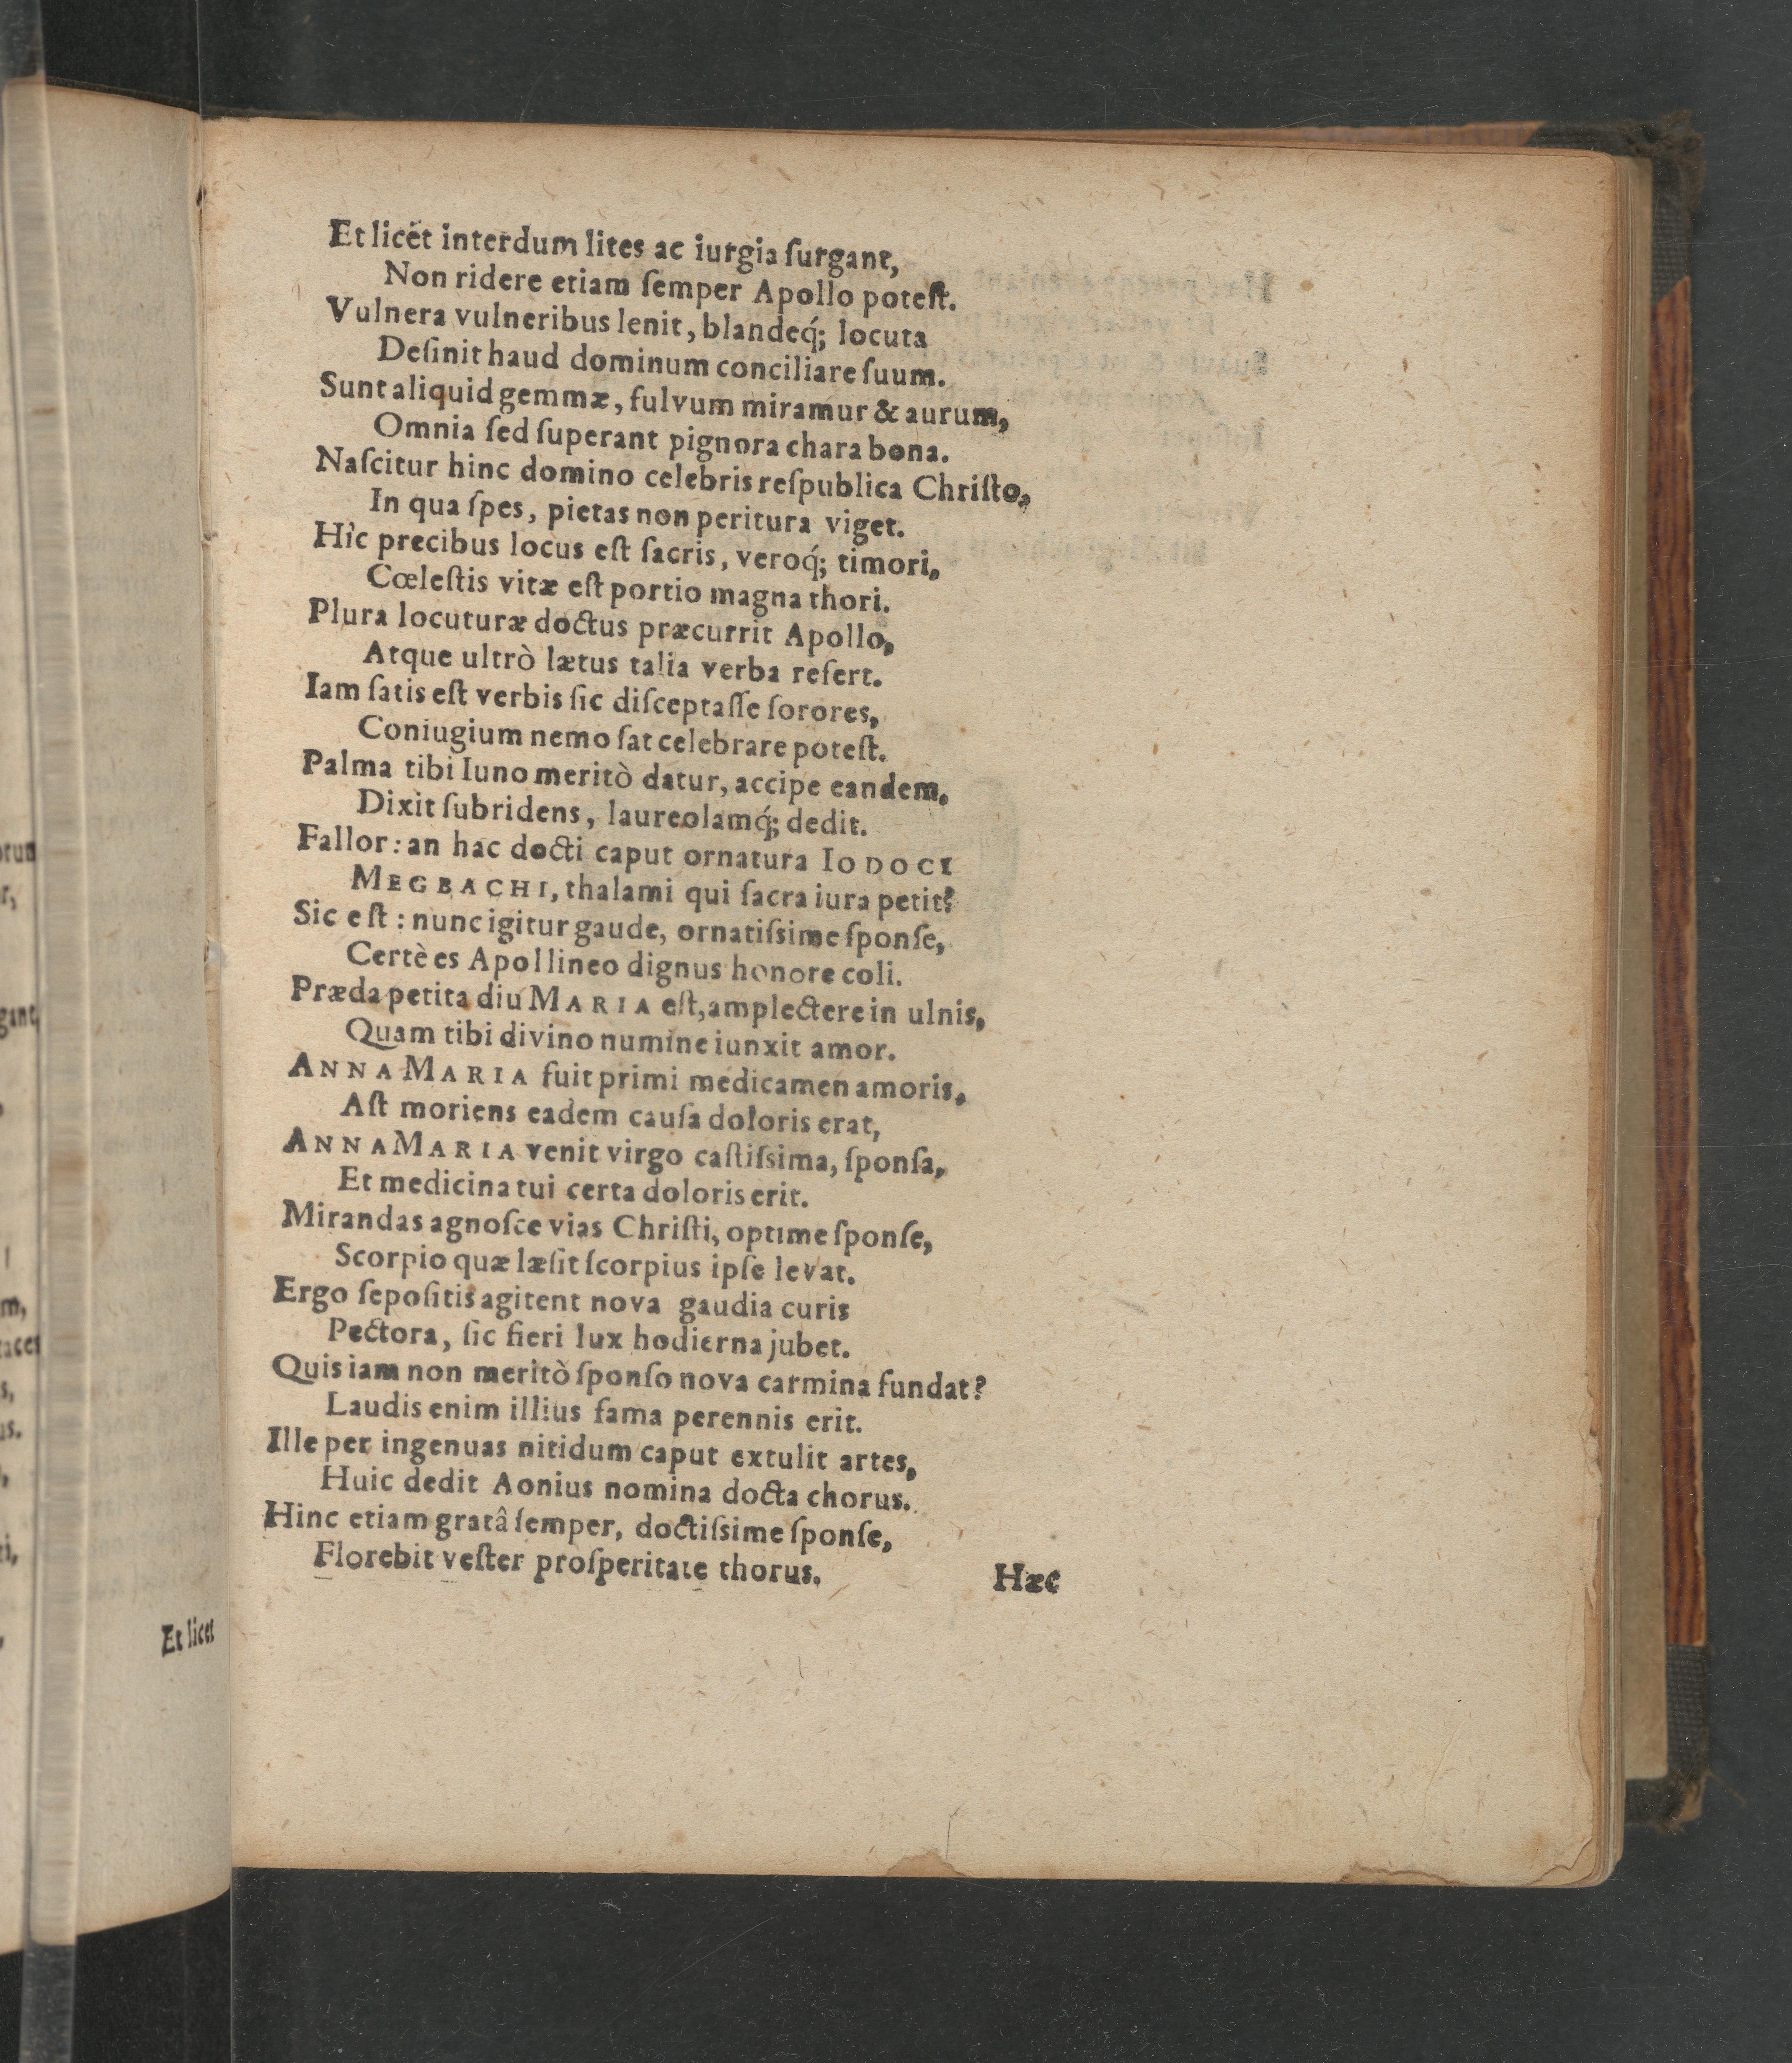 Et licet interdum lites ac iurgia ſurgant,
Non ridere etiam ſemper Apollo poteſt.
Vulnera vulneribus lenit, blandeq́; locuta
Deſinit haud dominum conciliare ſuum.
Sunt aliquid gemmæ, fulvum miramur & aurum,
Omnia ſed ſuperant pignora chara bona.
Naſcitur hinc domino celebris reſpublica Chriſto,
In qua ſpes, pietas non peritura viget.
Hìc precibus locus eſt ſacris, veroq́; timori,
Cœleſtis vitæ eſt portio magna thori.
Plura locuturæ doctus præcurrit Apollo,
Atque ultrò lætus talia verba refert.
Iam ſatis eſt verbis ſic diſceptaſſe ſorores,
Coniugium nemo ſat celebrare poteſt.
Palma tibi Iuno meritò datur, accipe eandem,
Dixit ſubridens, laureolamq́; dedit.
Fallor: an hac docti caput ornatura IODOCI
MEGBACHI, thalami qui ſacra iura petit?
Sic eſt: nunc igitur gaude, ornatiſsime ſponſe,
Certè es Apollineo dignus honore coli.
Præda petita diu MARIA eſt, amplectere in ulnis,
Quam tibi divino numine iunxit amor.
ANNA MARIA fuit primi medicamen amoris,
Aſt moriens eadem cauſa doloris erat,
ANNA MARIA venit virgo caſtiſsima, ſponſa,
Et medicina tui certa doloris erit.
Mirandas agnoſce vias Chriſti, optime ſponſe,
Scorpio quæ læſit ſcorpius ipſe levat.
Ergo ſepoſitis agitent nova gaudia curis
Pectora, ſic fieri lux hodierna jubet.
Quis iam non meritò ſponſo nova carmina fundat?
Laudis enim illius fama perennis erit.
Ille per ingenuas nitidum caput extulit artes,
Huic dedit Aonius nomina docta chorus.
Hinc etiam gratâ ſemper, doctiſsime ſponſe,
Florebit veſter proſperitate thorus.
Hæc
Et licet